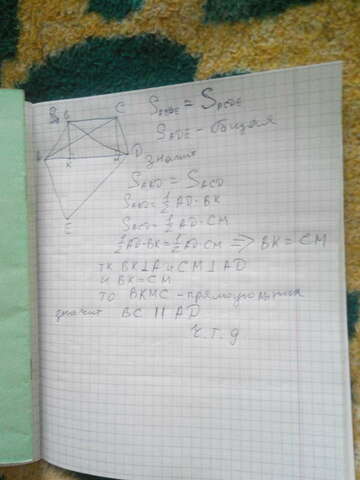 B C
A K M D
E
S_ABDE = S_ACDE
S_ADE - общая
значит
S_ABD = S_ACD
S_ABD = 1/2 AD·BK
S_ACD = 1/2 AD·CM
1/2 AD·BK = 1/2 AD·CM => BK = CM
тк BK⊥A и CM⊥AD
и BK=CM
то BKMC - прямоугольник
значит BC || AD
ч.т.д